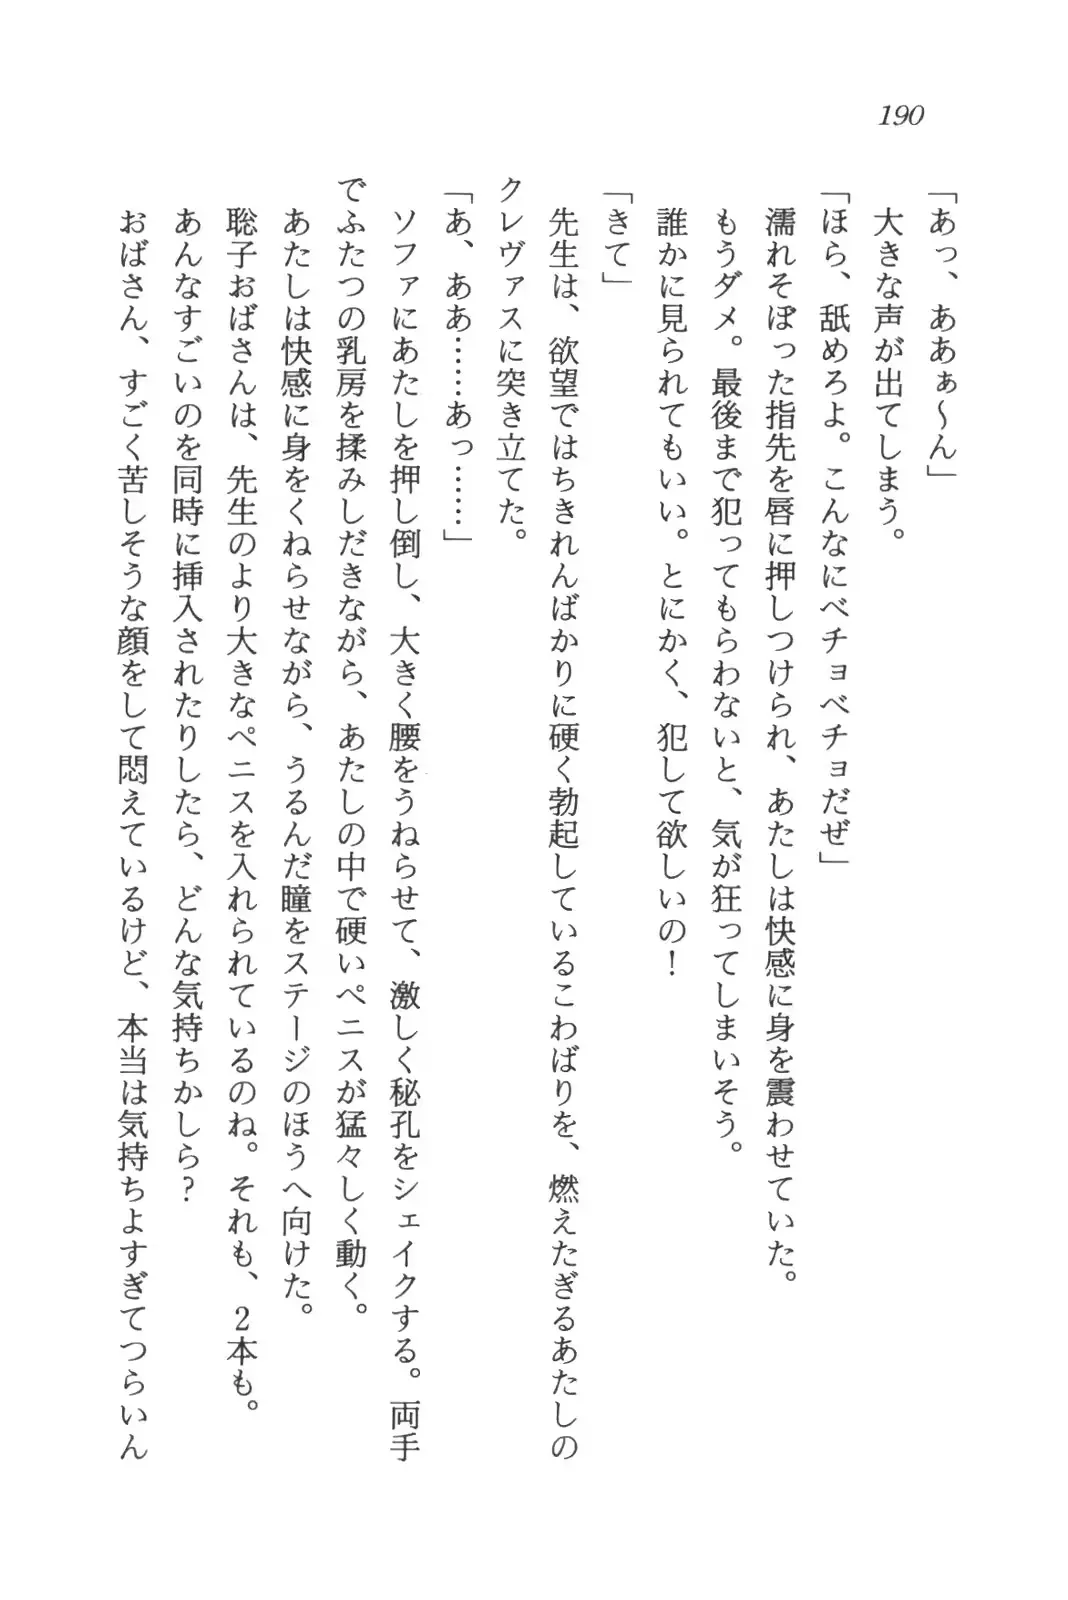 190
「あっ、ああぁ～ん」
大きな声が出てしまう。
「ほら、舐めろよ。こんなにベチョベチョだぜ」
濡れそぼった指先を唇に押しつけられ、あたしは快感に身を震わせていた。
もうダメ。最後まで犯ってもらわないと、気が狂ってしまいそう。
誰かに見られてもいい。とにかく、犯して欲しいの！
「きて」
先生は、欲望ではちきれんばかりに硬く勃起しているこわばりを、燃えたぎるあたしの
クレヴァスに突き立てた。
「あ、ああ……あっ……」
ソファにあたしを押し倒し、大きく腰をうねらせて、激しく秘孔をシェイクする。両手
でふたつの乳房を揉みしだきながら、あたしの中で硬いペニスが猛々しく動く。
あたしは快感に身をくねらせながら、うるんだ瞳をステージのほうへ向けた。
聡子おばさんは、先生のより大きなペニスを入れられているのね。それも、2本も。
あんなすごいのを同時に挿入されたりしたら、どんな気持ちかしら？
おばさん、すごく苦しそうな顔をして悶えているけど、本当は気持ちよすぎてつらいん